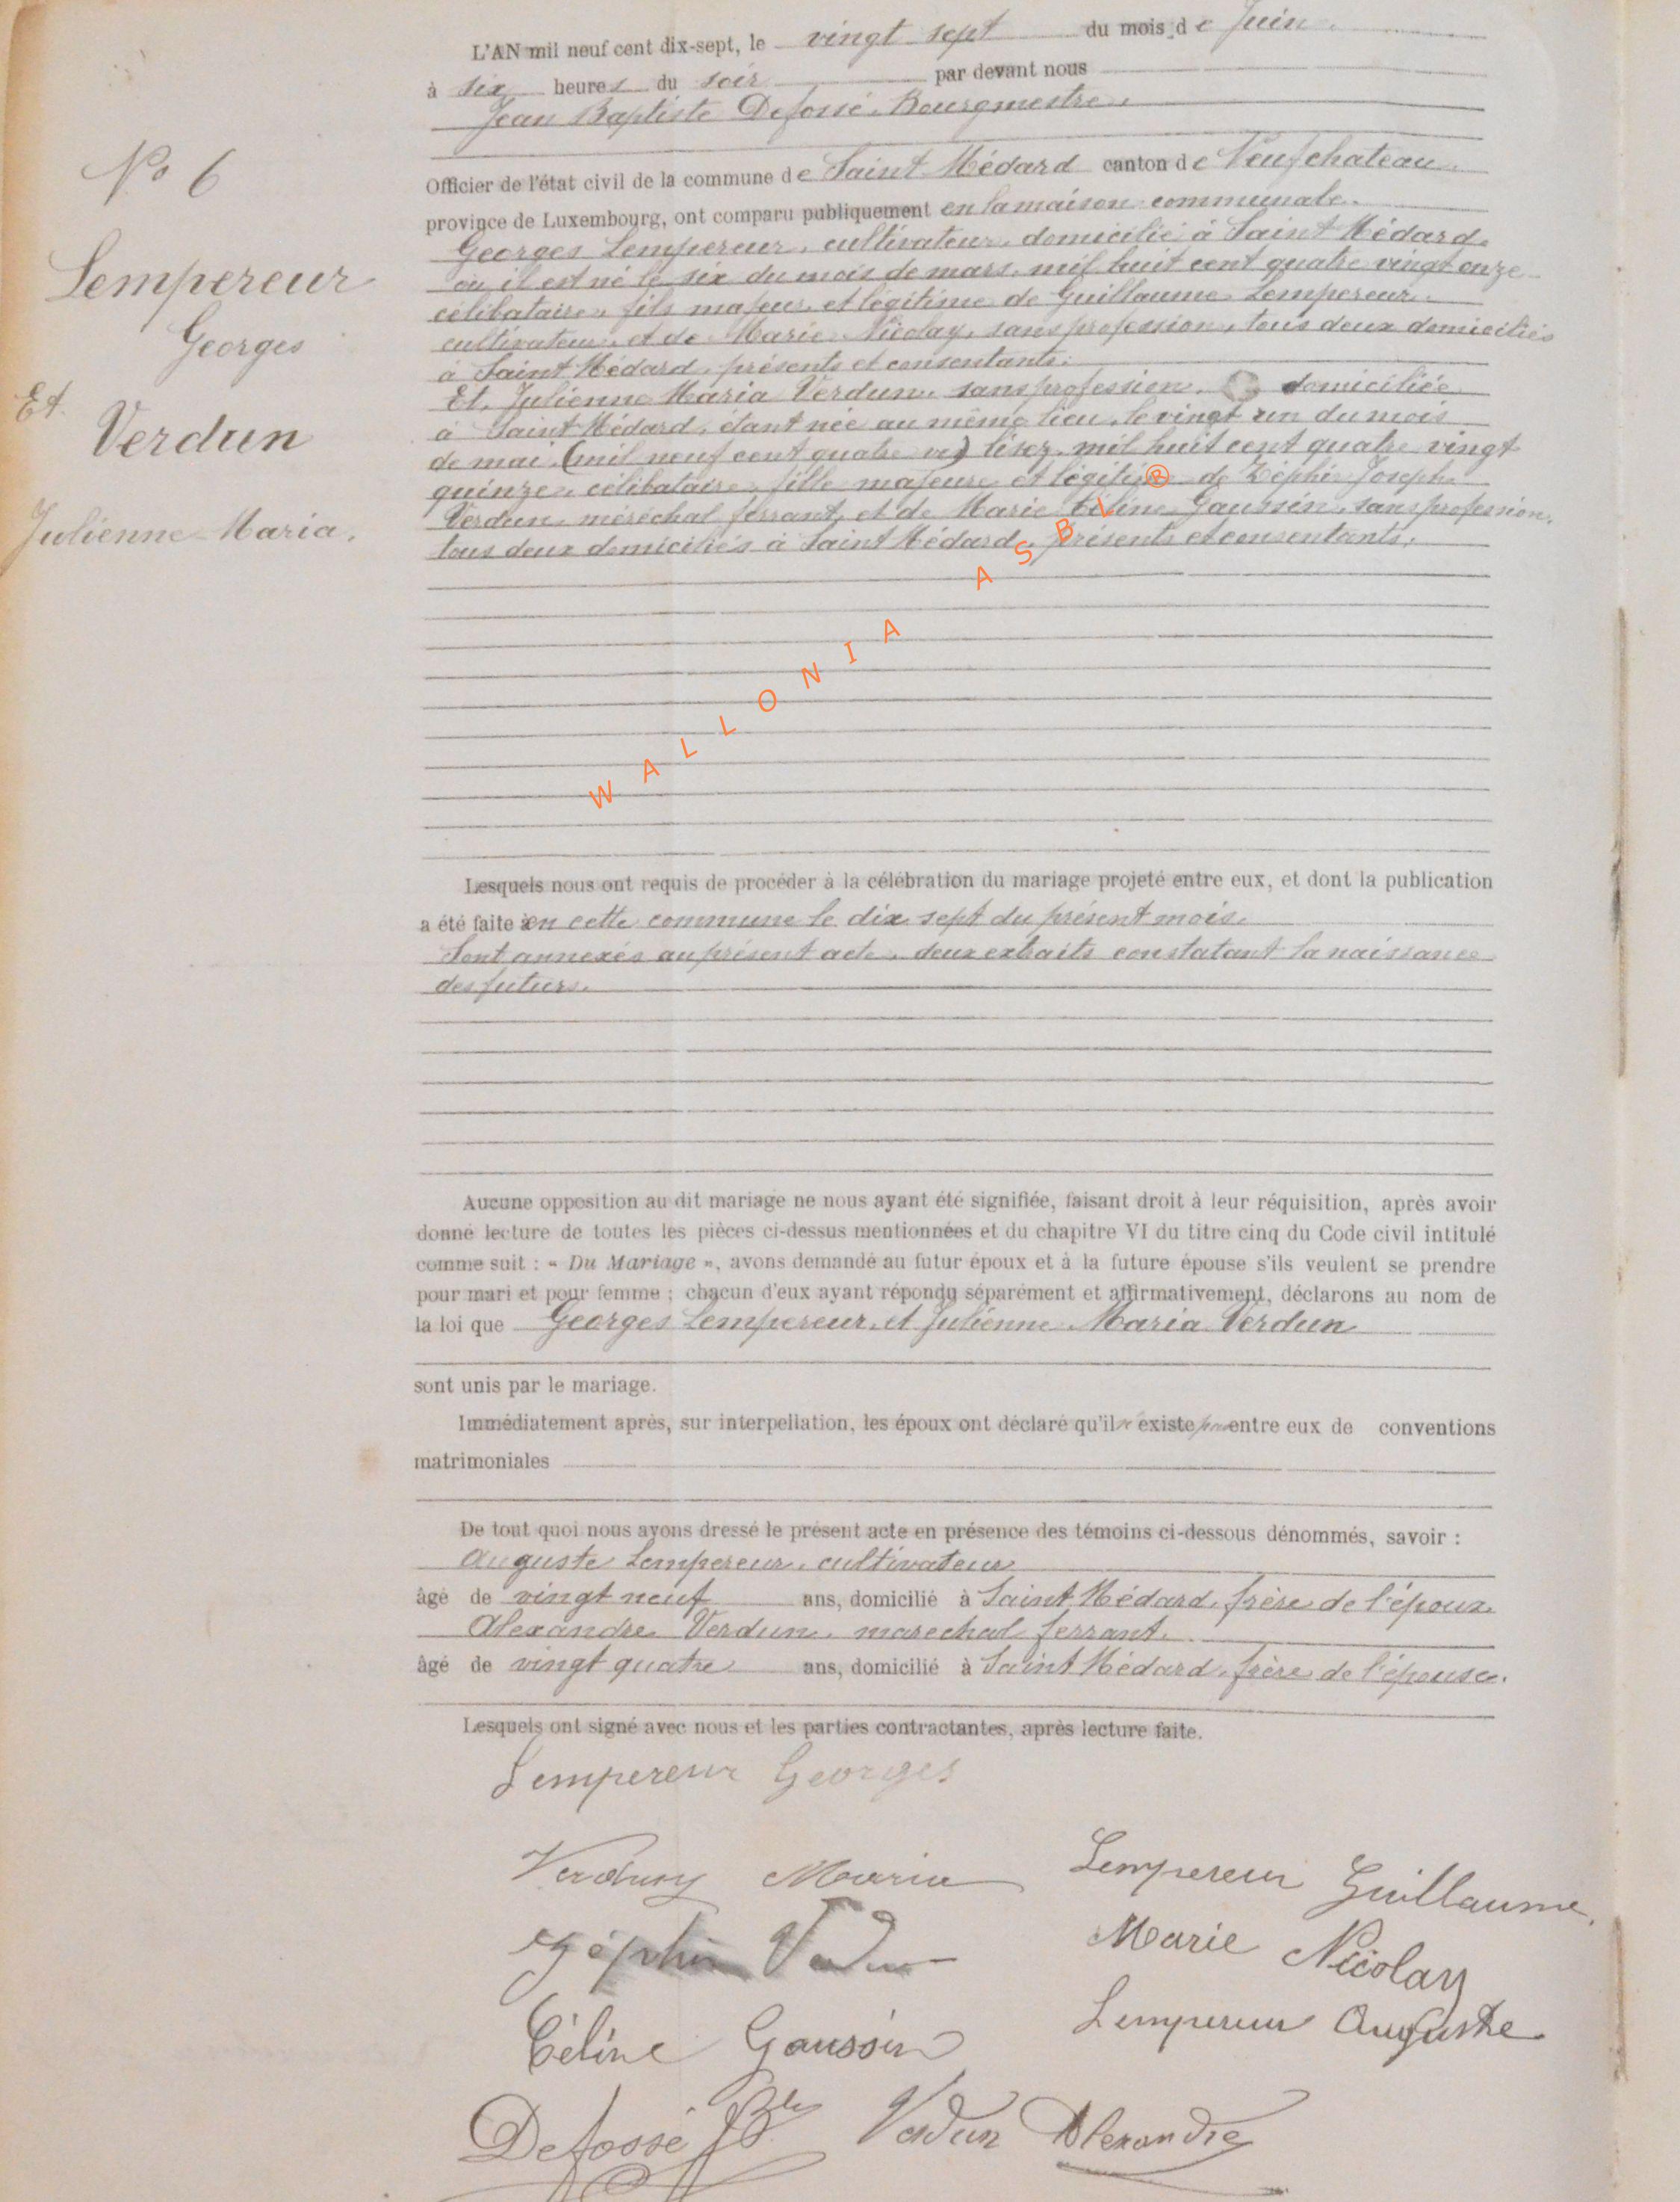 L'AN mil neuf cent dix-sept, le vingt sept du mois de Juin
à six heures du soir par devant nous
Jean Baptiste Defossé. Bourgmestre.
Officier de l'état civil de la commune de Saint Médard canton de Neufchateau
province de Luxembourg, ont comparu publiquement en la maison communale.
Georges Lempereur, cultivateur, domicilié à Saint Médard.
où il est né le six du mois de mars, mil huit cent quatre vingt onze
célibataire, fils majeur, et légitime de Guillaume Lempereur.
cultivateur, et de Marie Nicolay, sans profession, tous deux domiciliés
à Saint Médard, présents et consentants.
Et, Julienne Maria Verdun, sans profession, domiciliée
à Saint Médard, étant née au même lieu, le vingt un du mois
de mai, (mil neuf cent quatre vi) lisez, mil huit cent quatre vingt
quinze, célibataire, fille majeure et légitime de Zéphir Joseph
Verdun, méréchal ferrant, et de Marie Céline Gaussin, sans profession,
tous deux domiciliés à Saint Médard, présents et consentants.
WALLONIA ASBL®
Lesquels nous ont requis de procéder à la célébration du mariage projeté entre eux, et dont la publication
a été faite en cette commune le dix sept du présent mois.
Sont annexés au présent acte, deux extraits constatant la naissance
des futurs.
Aucune opposition au dit mariage ne nous ayant été signifiée, faisant droit à leur réquisition, après avoir
donné lecture de toutes les pièces ci-dessus mentionnées et du chapitre VI du titre cinq du Code civil intitulé
comme suit : « Du Mariage », avons demandé au futur époux et à la future épouse s'ils veulent se prendre
pour mari et pour femme ; chacun d'eux ayant répondu séparément et affirmativement, déclarons au nom de
la loi que Georges Lempereur, et Julienne Maria Verdun
sont unis par le mariage.
Immédiatement après, sur interpellation, les époux ont déclaré qu'il n'existe pas entre eux de conventions
matrimoniales
De tout quoi nous avons dressé le présent acte en présence des témoins ci-dessous dénommés, savoir :
Auguste Lempereur, cultivateur
âgé de vingt neuf ans, domicilié à Saint Médard, frère de l'époux
Alexandre Verdun, marechal ferrant.
âgé de vingt quatre ans, domicilié à Saint Médard, frère de l'épouse.
Lesquels ont signé avec nous et les parties contractantes, après lecture faite.
Lempereur Georges
Verdun Maria
Lempereur Guillaume.
Zéphir Verdun
Marie Nicolay
Céline Gaussin
Lempereur Auguste
Defossé JBte
Verdun Alexandre
No 6
Lempereur
Georges
Et
Verdun
Julienne Maria.